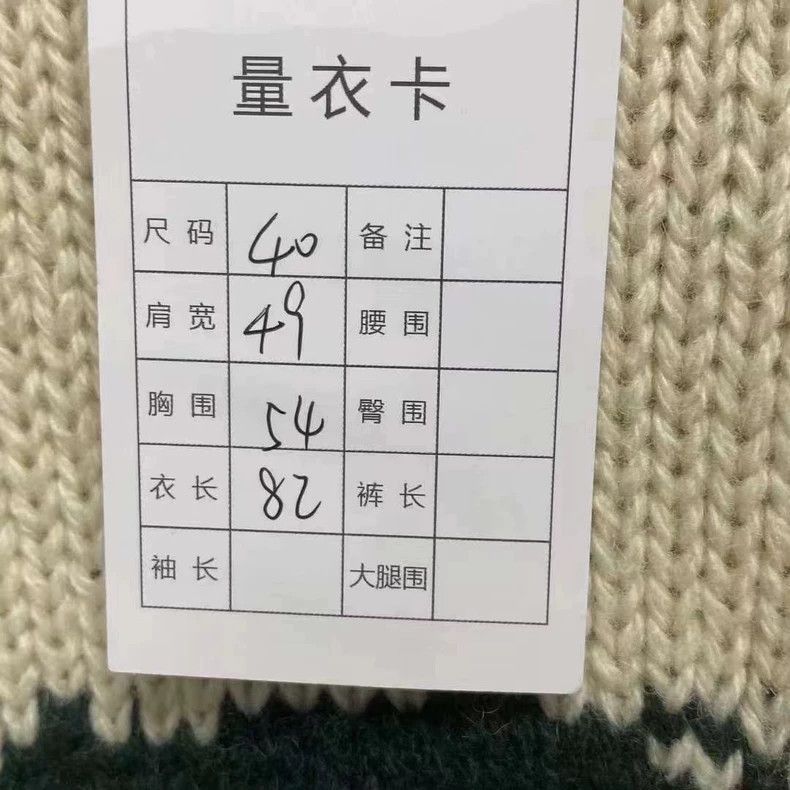 量衣卡
尺码 40 备注
肩宽 49 腰围
胸围 54 臀围
衣长 82 裤长
袖长 大腿围